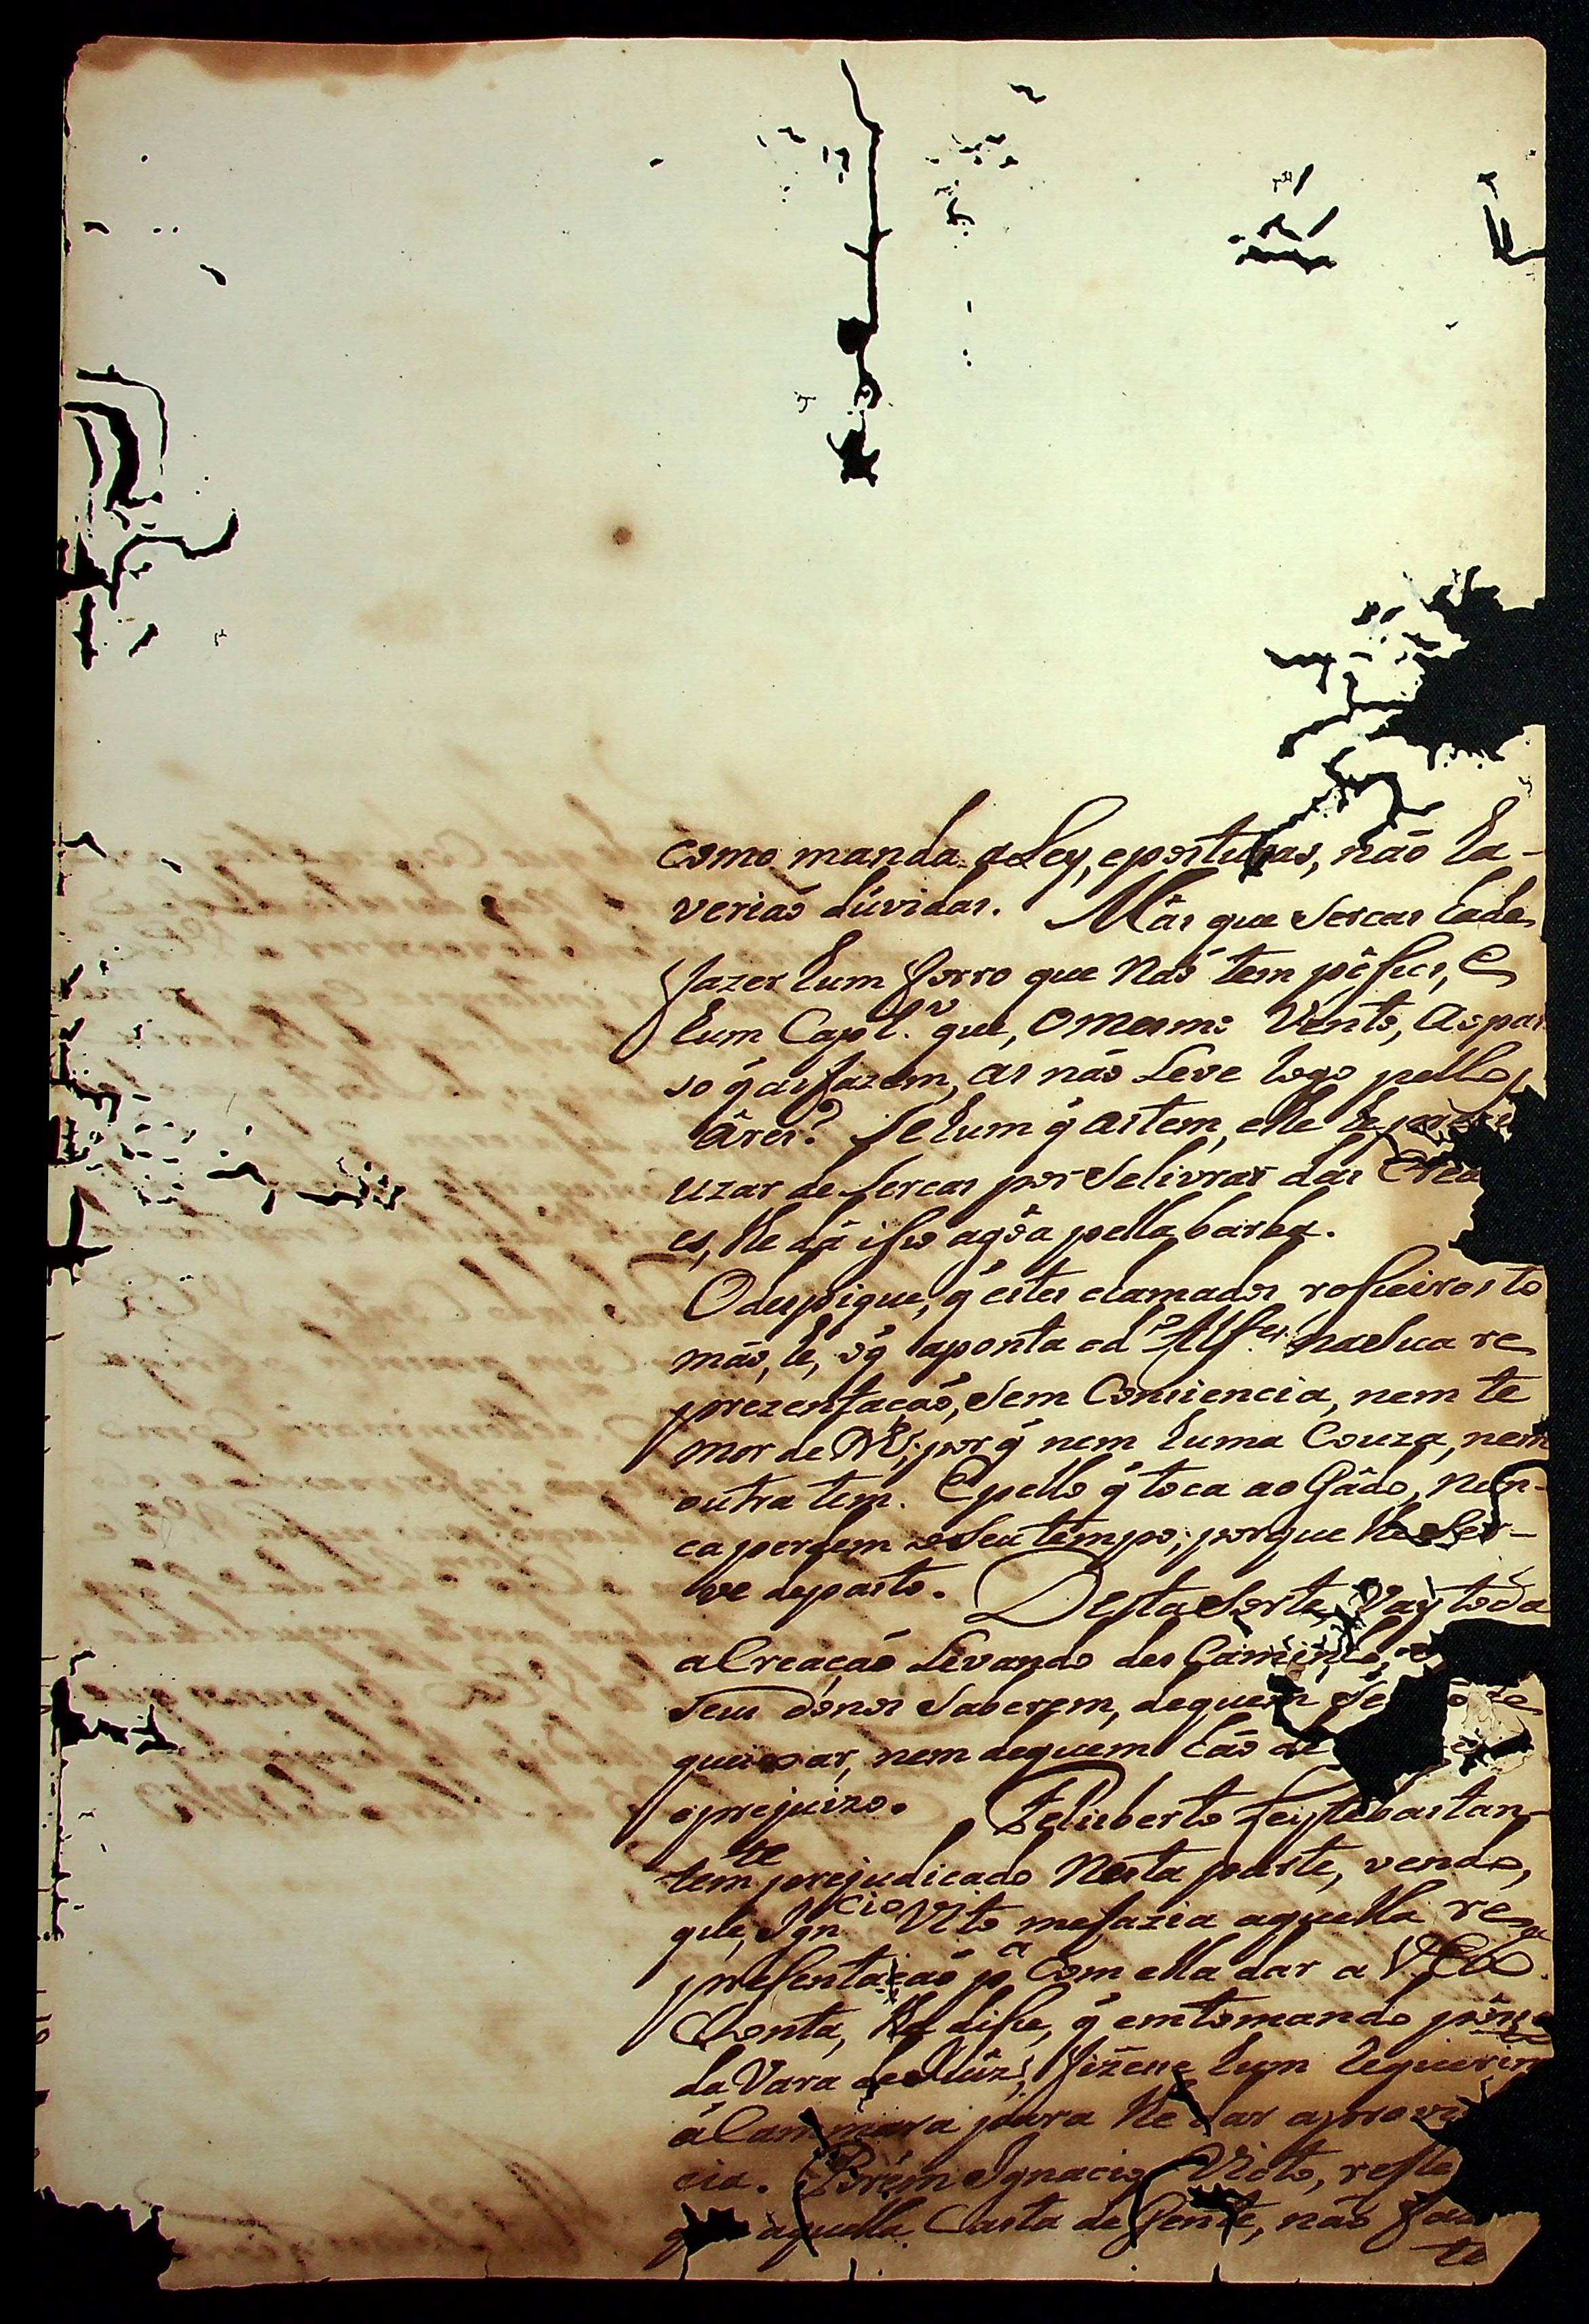 como manda a Ley, eposturas, não ha-
veriaõ dúvidas. Mas que sercas hade
fazer hum forro que Naõ tem poses, e
hum Cap.l que, o mesmo Vento, ao pas
so q̃ as fazem, as não Leve logo pellos
áres? Se hum q̃ as tem, elle he
uzar de sercas por se livrar das
es, lhe dá isso agóa pella barba.
O despique, q̃ estes clamados rosseiros to
maõ, hé, o q̃ aponta o d.o Alf.es na sua re
prezentaçaõ, sem Consiencia, nem te
mor de D.s; por q̃ nem huma Couza, nem
outra tem. E pello q̃ toca ao Gádo, nun-
ca perdem o seu tempo; porque lhe ser-
ve de pasto. Desta sorte Vay toda
a Creaçaõ Levando des Caminho,
seus donos saberem, de quem se
queixar, nem de quem haõ de
o prejuizo. Felisberto Leyte bastan-
tem.te prejudicado Nesta parte, vendo,
que, Ign.cio Vito me fazia aquella re
presentaçaõ p.a Com ella dar a V. Ex.
Conta, lhe disse, q̃ em tomando
da Vara de Juiz, fizesse hum requerim
á Cammara para lhe dar a provi
cia. Porém Ignacio Victo,
aquella Casta de Gente, não
to